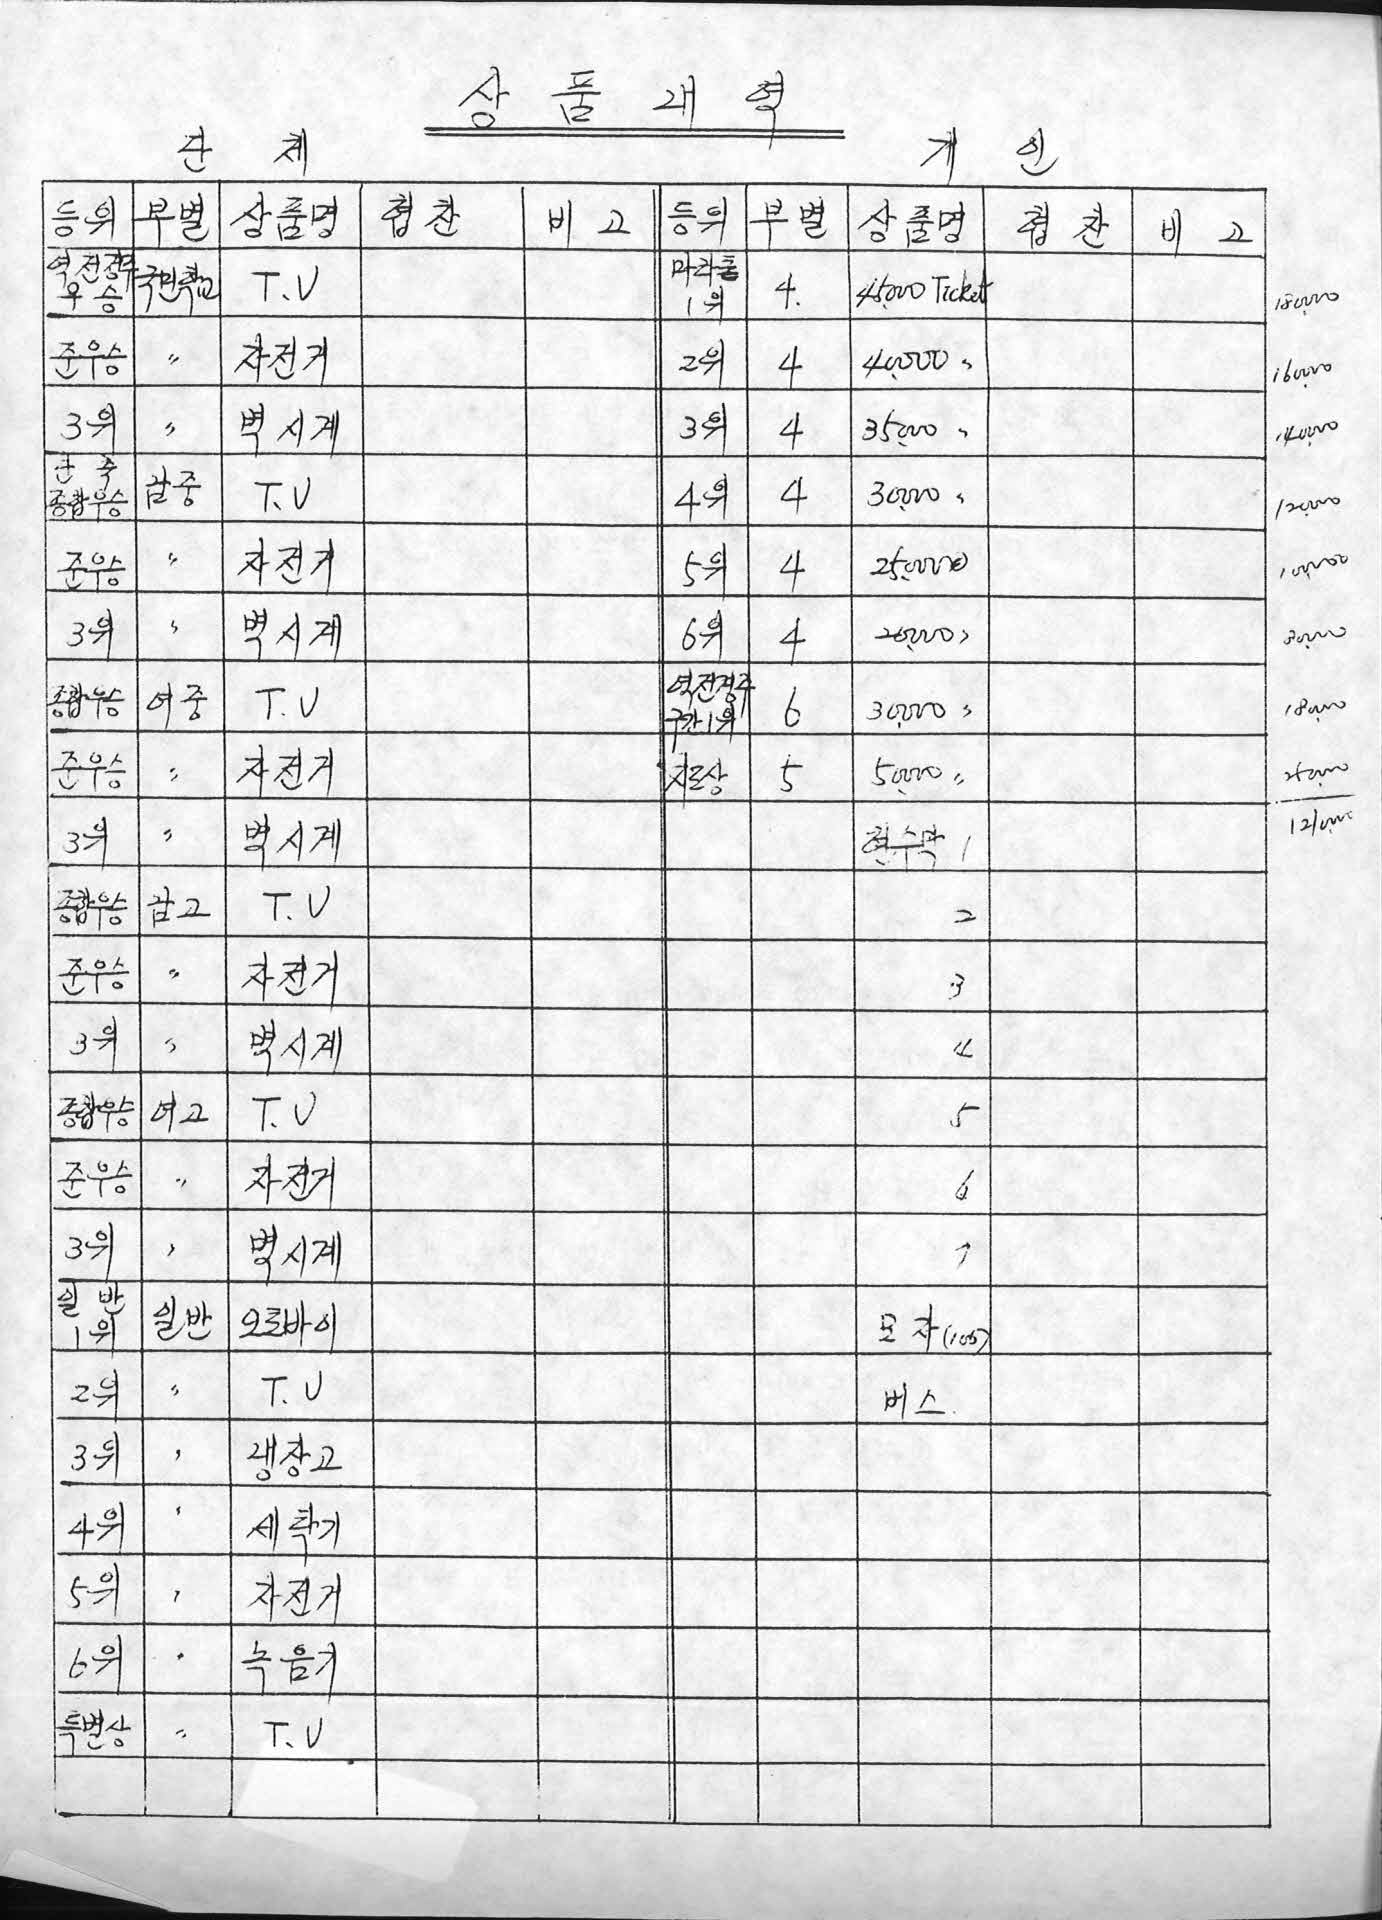 상품내역
단체 개인
등위 부별 상품명 협찬 비고 등위 부별 상품명 협찬 비고
역전경주 우승 국민학교 T.V 마라톤 1위 4. 45,000 Ticket 180,000
준우승 〃 자전거 2위 4 40,000 〃 160,000
3위 〃 벽시계 3위 4 35,000 〃 140,000
단축 종합우승 남중 T.V 4위 4 30,000 〃 120,000
준우승 〃 자전거 5위 4 25,000 100,000
3위 〃 벽시계 6위 4 20,000 〃
종합우승 여중 T.V 역전경주 구간1위 6 30,000 〃 180,000
준우승 〃 자전거 지도상 5 50,000 〃 250,000
3위 〃 벽시계 현수막 1
종합우승 남고 T.V 2
준우승 〃 자전거 3
3위 〃 벽시계 4
종합우승 여고 T.V 5
준우승 〃 자전거 6
3위 〃 벽시계 7
일반 1위 일반 오토바이 모자
2위 〃 T.V 버스
3위 〃 냉장고
4위 〃 세탁기
5위 〃 자전거
6위 〃 녹음기
특별상 〃 T.V